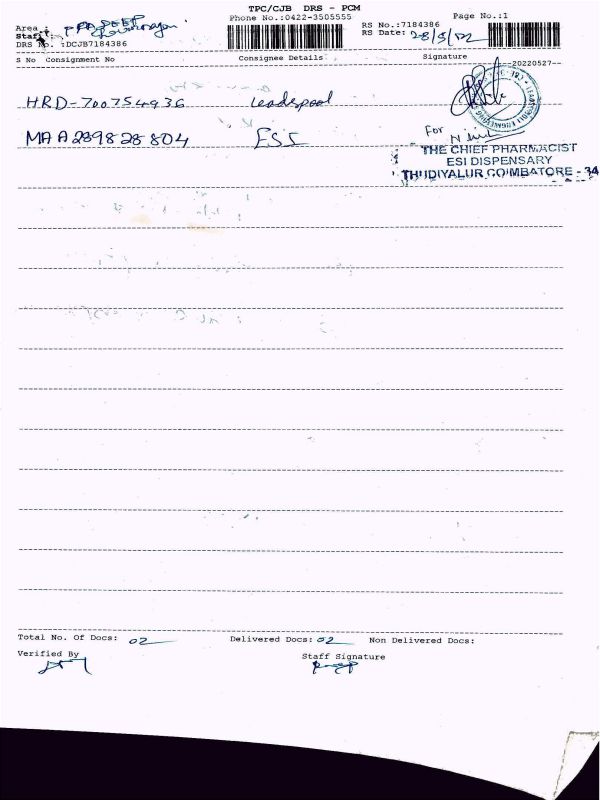 TPC/CJB DRS - PCM
Phone No.:0422-3505555
Page No.:1
Area : PRADEEP
Staff :
RS No.:7184386
DRS No. :DCJB7184386
RS Date: 28/5/22
S No Consignment No Consignee Details Signature
--20220527--
HRD-700754936
MAA289828804 ESI
For
THE CHIEF PHARMACIST
ESI DISPENSARY
THUDIYALUR COIMBATORE - 34
Total No. Of Docs: 02 Delivered Docs: 02 Non Delivered Docs:
Verified By
Staff Signature